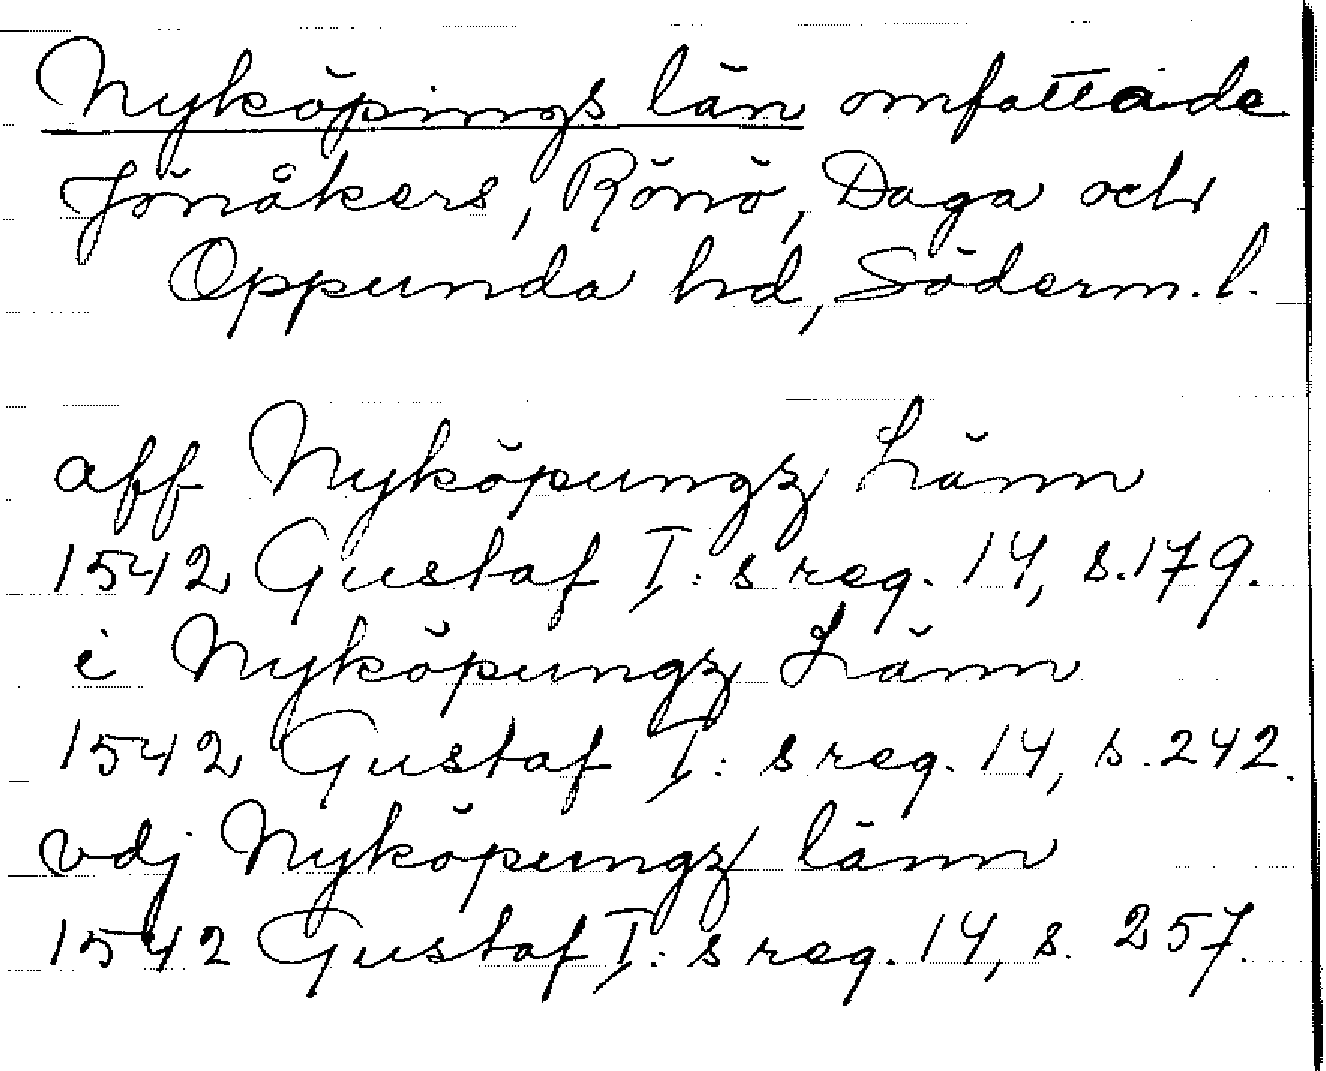 Nyköpings län omfattade
Jönåkers, Rönö, Daga och
Oppunda hd, Söderm. l.
aff Nyköpungz Länn
1542 Gustaf I:s reg. 14, s. 179.
i Nyköpungz Länn
1542 Gustaf I:s reg. 14, s. 242.
vdj Nyköpungz länn
1542 Gustaf I:s reg. 14, s. 257.